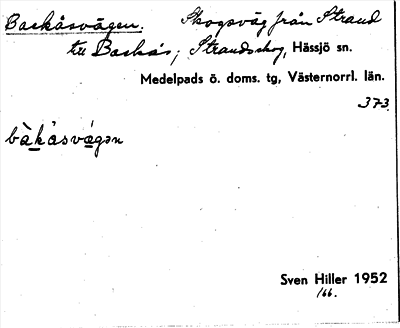 Backåsvägen. Skogsväg från Strand
till Backås; Strandskog, Hässjö sn.
Medelpads ö. doms. tg, Västernorrl. län.
373.
bàkåsvǽgən
Sven Hiller 1952
/66.